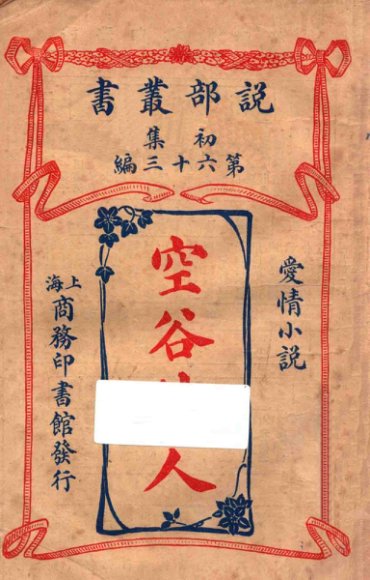 説部叢書
初集
第六十三編
愛情小説
空谷
人
上海
商務印書館發行